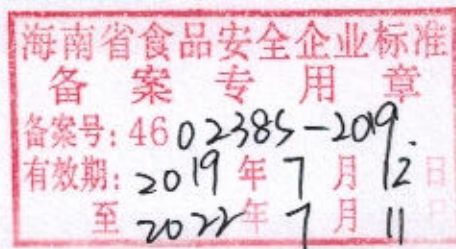 海南省食品安全企业标准
备案专用章
备案号: 4602385-2019.
有效期: 2019年7月12日
至2022年7月11日